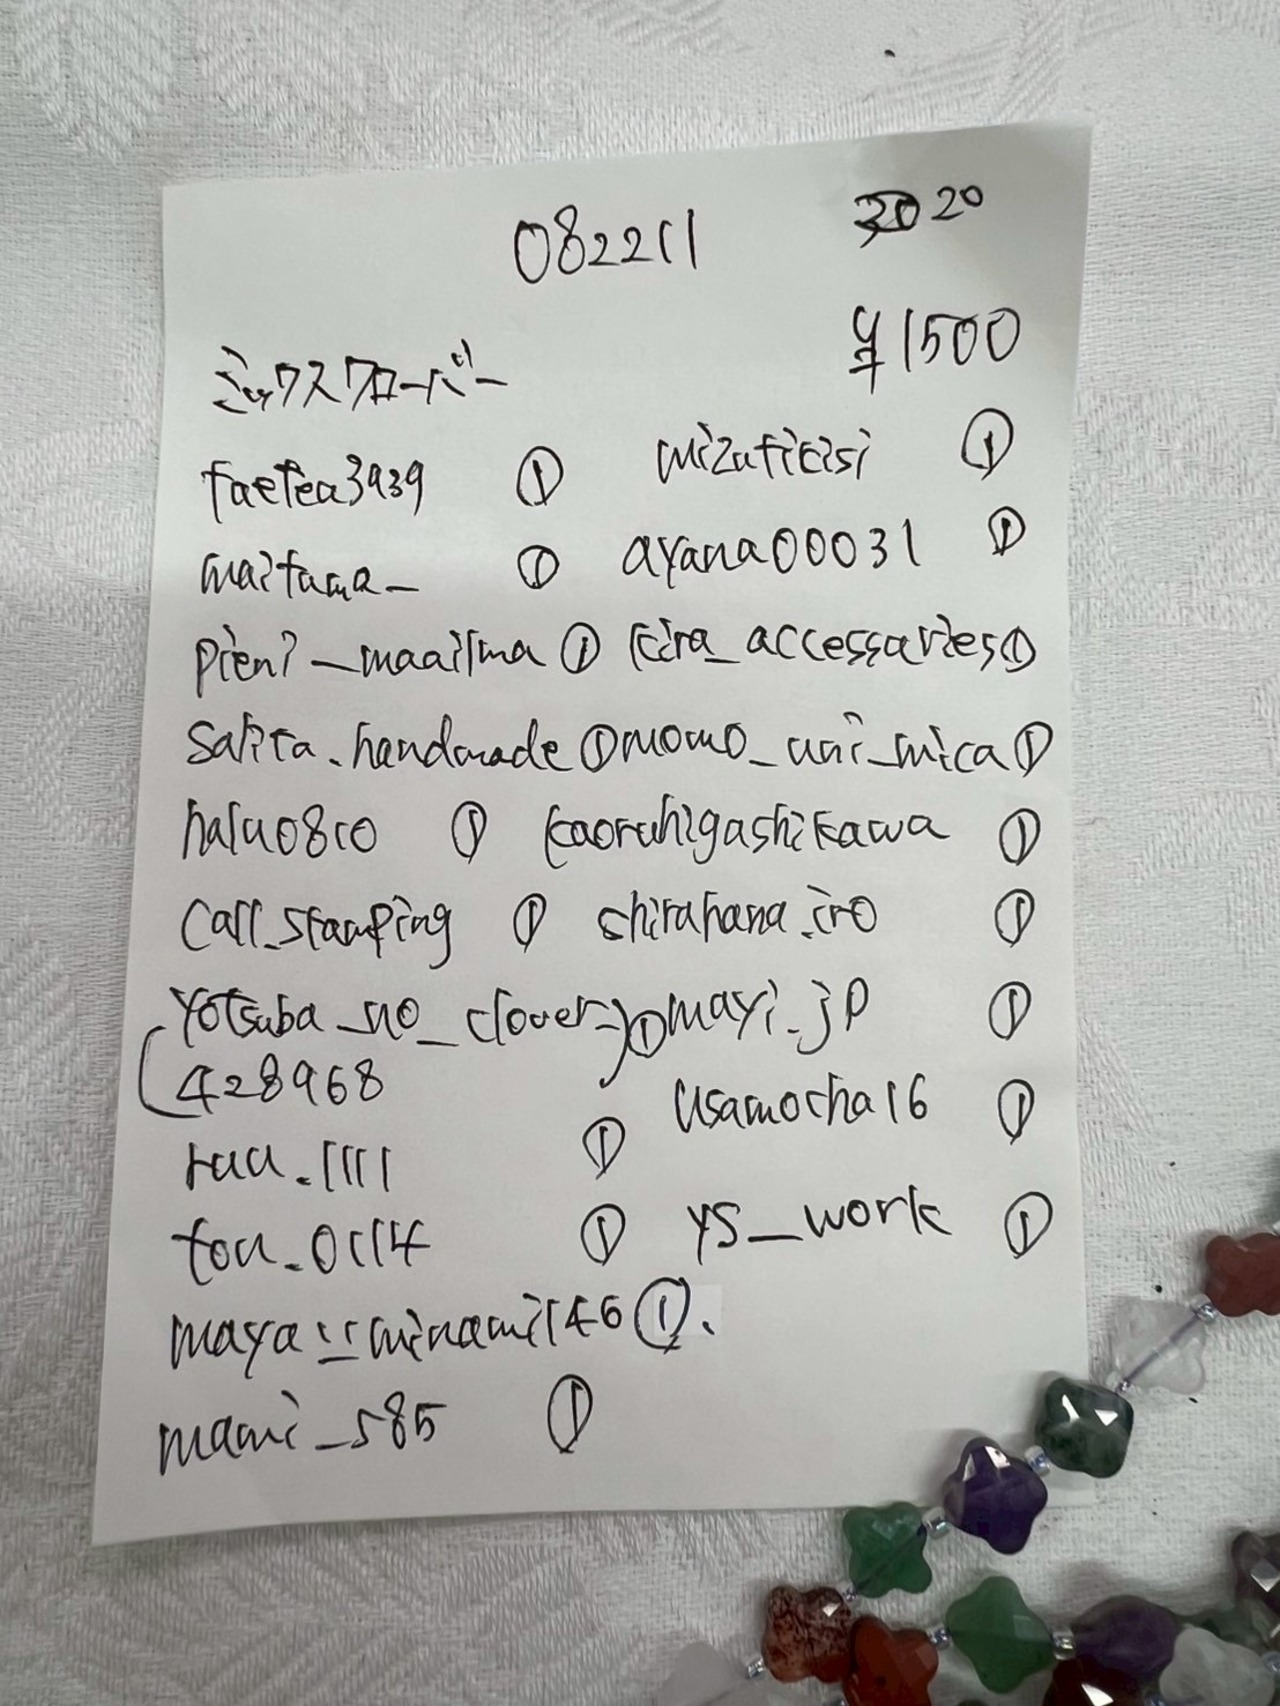 082211
20
¥1500
ミックスクローバー
faefea3939 ① mizutikisi ①
maitama_ ① ayana00031 ①
pieni_maailma ① kira_accessaries ①
Salita.handmade ① momo_uni_mica ①
halu0810 ① kaoruhigashikawa ①
Call_stamping ① shirahana.iro ①
Yotsuba_no_clover ① mayi_jp ①
428968
usamocha16 ①
ruu.1111 ①
tou.0114 ① ys_work ①
maya_minami146 ①
mami_s85 ①